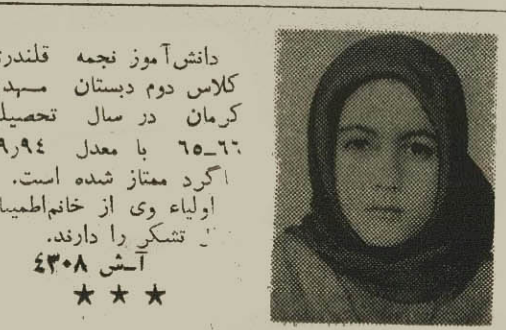 دانش‌آموز نجمه قلندری
کلاس دوم دبستان مهد
کرمان در سال تحصیلی
۶۶ـ۶۵ با معدل ۹ر۹٤
اگرد ممتاز شده است.
اولیاء وی از خانم اطمینا
تشکر را دارند.
آـش ٤٣٠٨
★ ★ ★